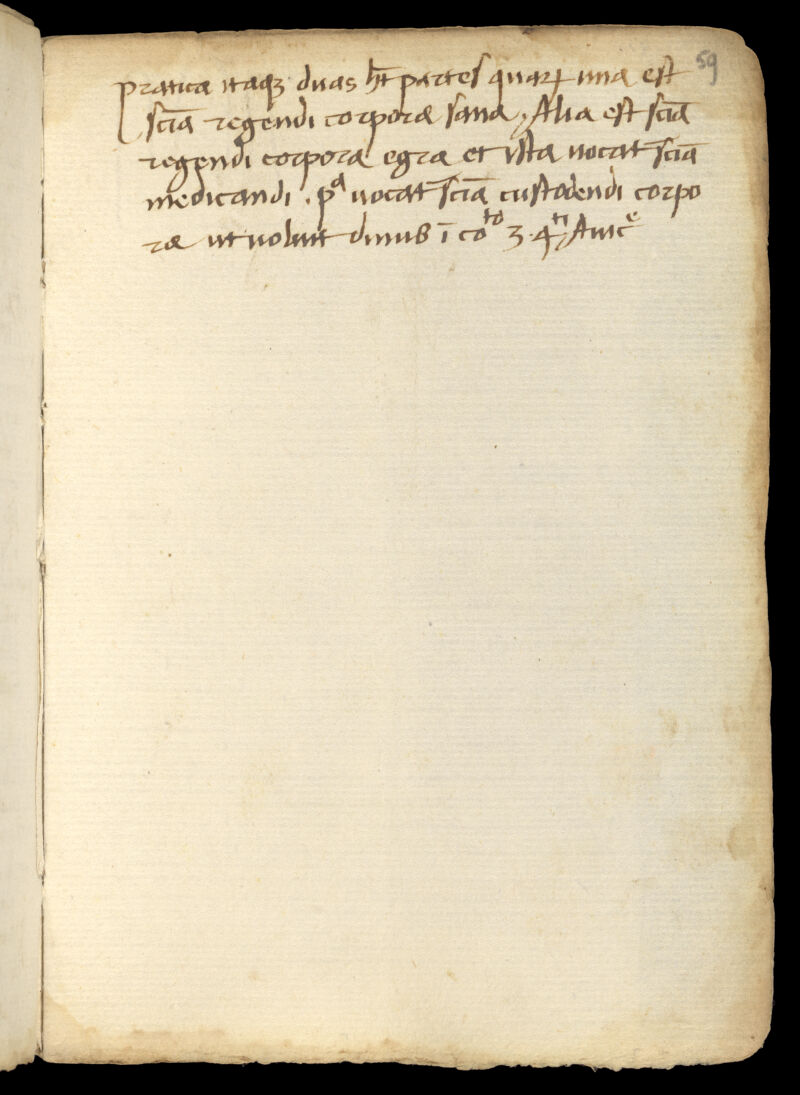 59
pratica itaqꝫ duas ħt partes quarꝝ una est
scīa regendi corpora sana, Alia est scīa
regendi corpora egra et ista uocat scīa
medicandi . pᵃ uocat scīa custodendi corpo
ra ut uoluit dinus ī coᵗᵒ 3. 4ᵗⁱ, Auicᵉ